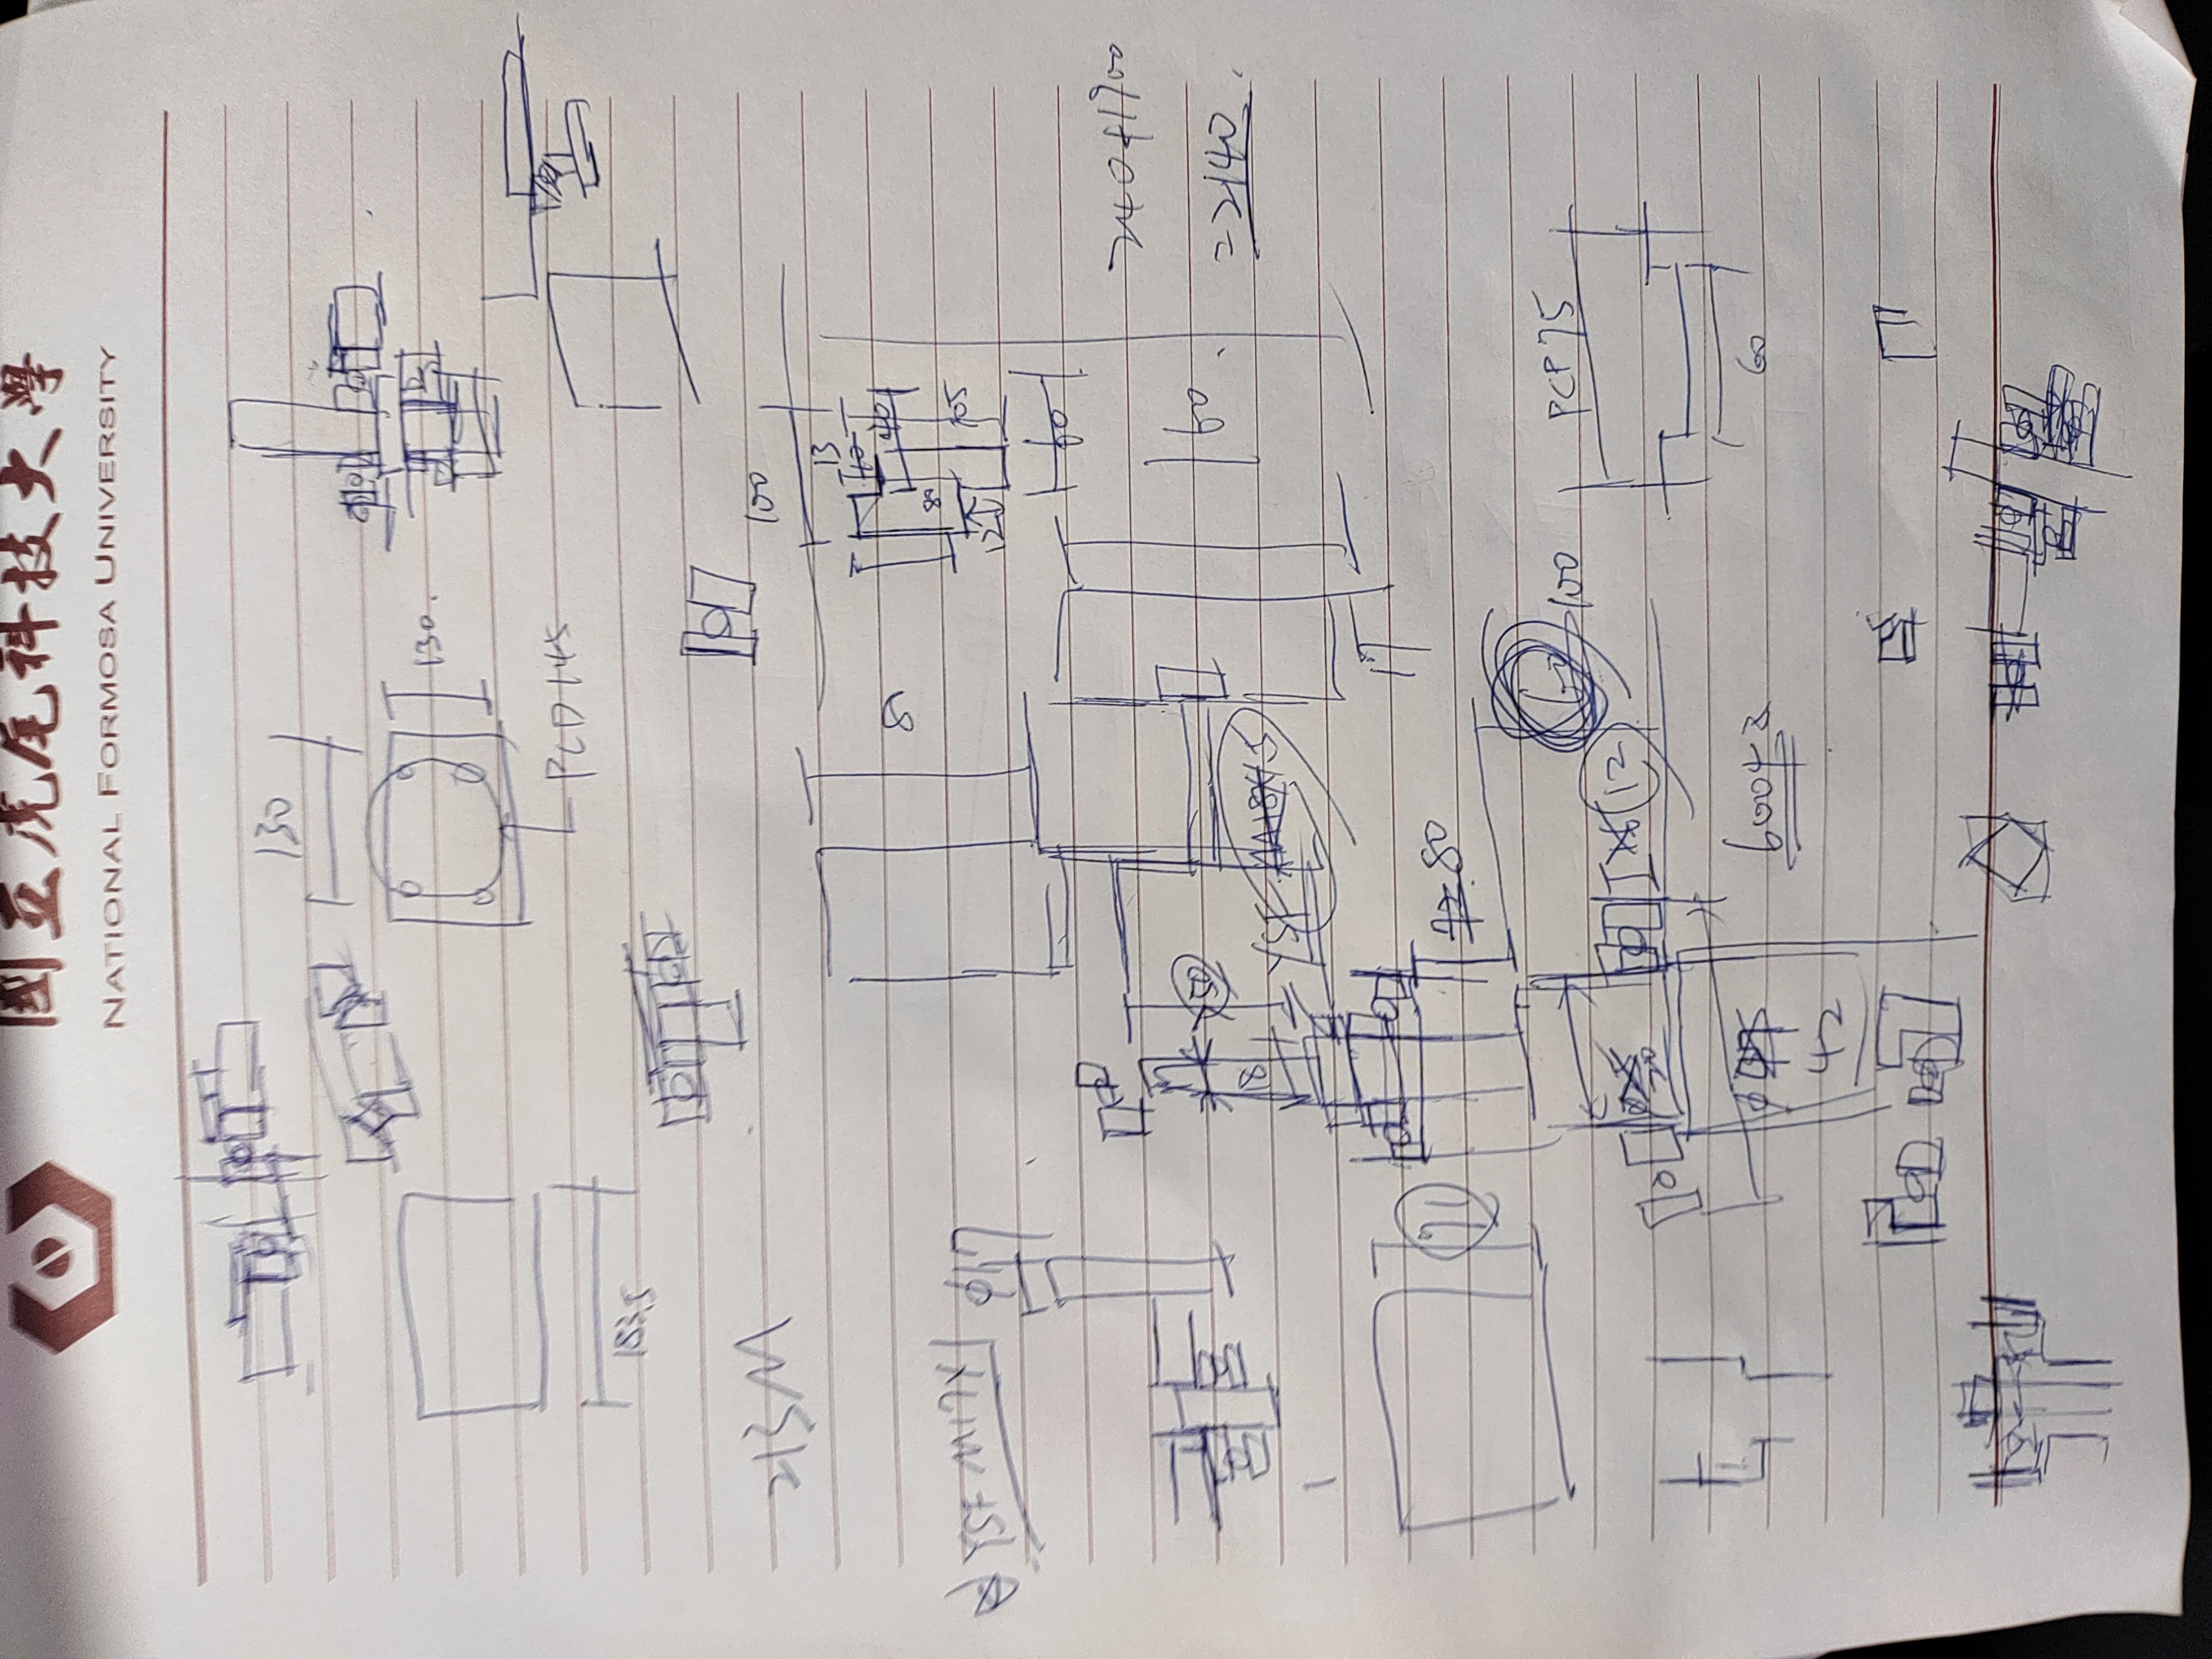 國立虎尾科技大學
NATIONAL FORMOSA UNIVERSITY
130
130.
PCD 145
183.5
213M
100
13
40
80
105
12
60
YSF M17x1
φ17
240+1900
=2140
60
50
18
YSF
17
91
80
100
PCP75
12
20
60
6004z
42